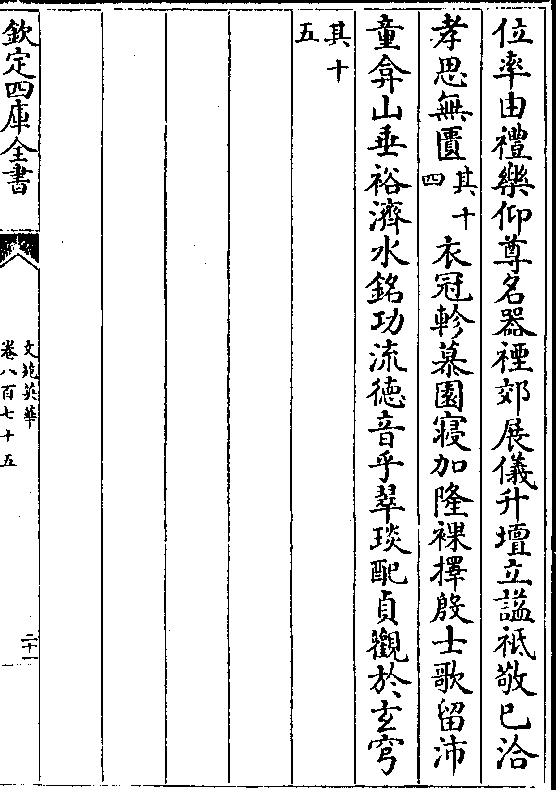 位率由禮樂仰尊名器禋郊展儀升壇立謚祗敬已洽
孝思無匱其十四衣冠軫慕園寢加隆祼擇殷士歌留沛
童弇山垂裕濟水銘功流德音乎翠琰配貞觀於𤣥穹
其十五
欽定四庫全書
文苑英華
卷八百七十五
二十一